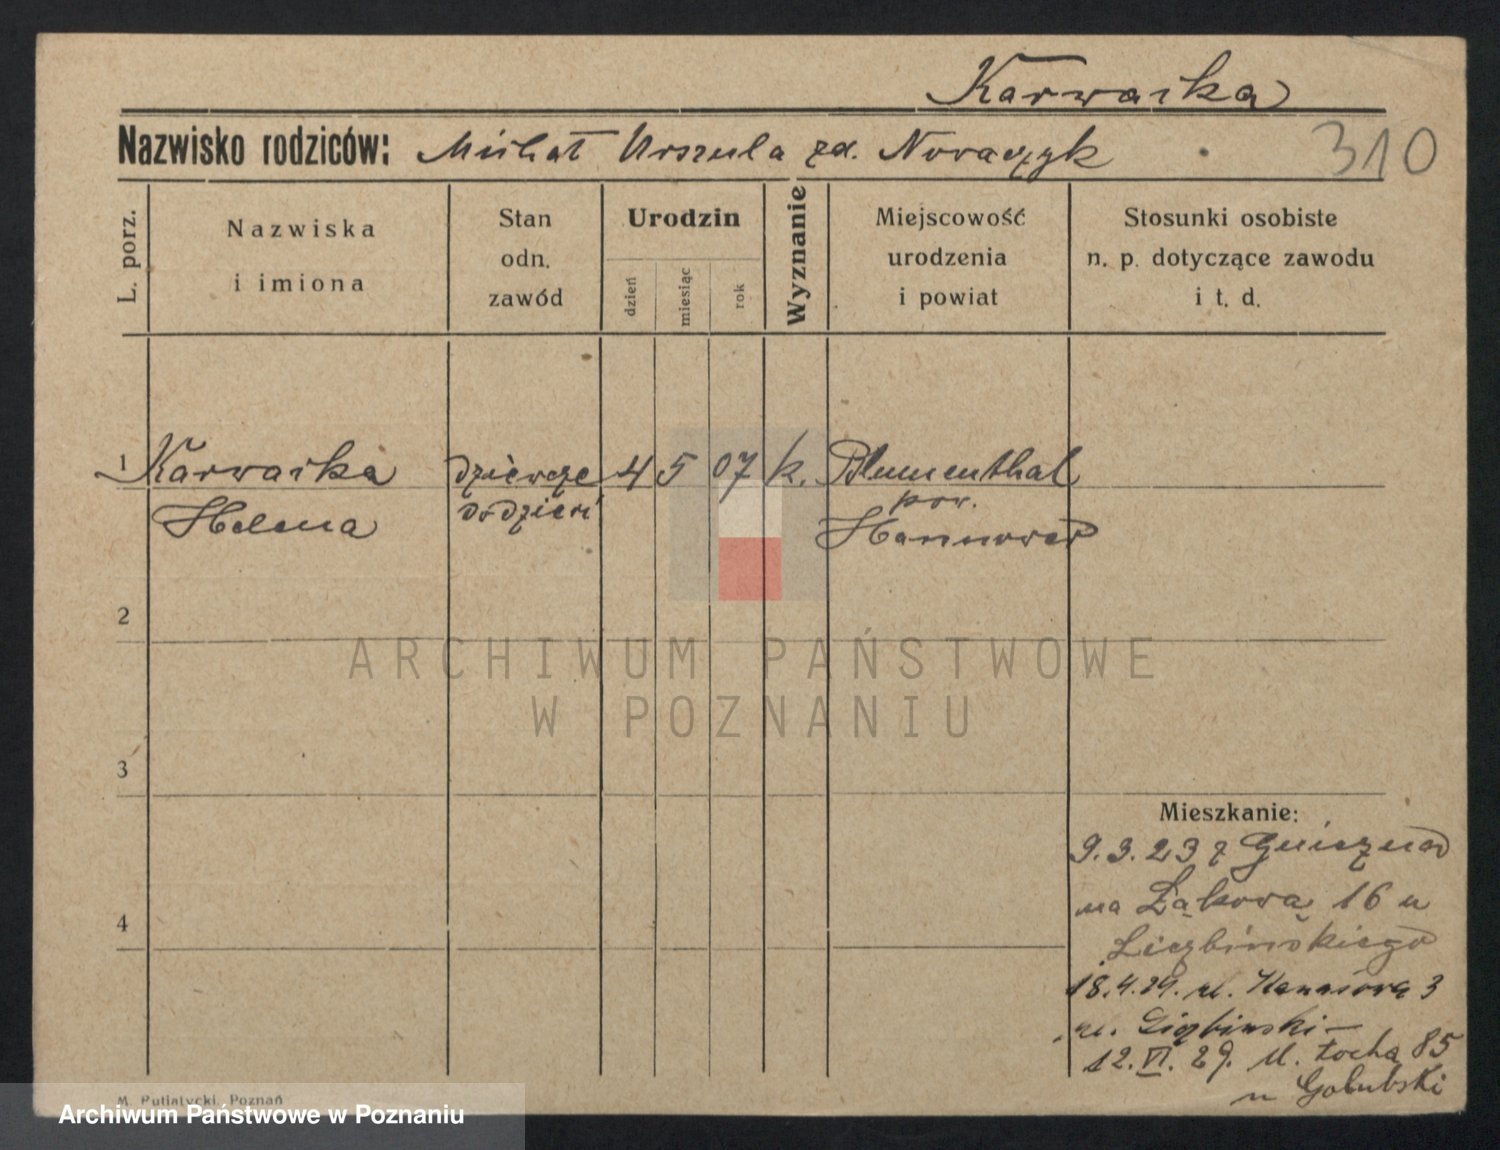 Karwaika
Nazwisko rodziców: Michał Urszula zd. Nowaczyk
310
L. porz.
Nazwiska
i imiona
Stan
odn.
zawód
Urodzin
dzień
miesiąc
rok
Wyznanie
Miejscowość
urodzenia
i powiat
Stosunki osobiste
n. p. dotyczące zawodu
i t. d.
1 Karwaika dziewczę 4 5 07 k. Blumenthal
pow.
Helena Hannower
2
3
4
ARCHIWUM PAŃSTWOWE
W POZNANIU
Mieszkanie:
9.3.23 z Gniezna
na Łąkowa 16 u
Liczbińskiego
18.4.29. ul. 3
12.VI.29. ul. Łocha 85
u Golubski
M. Putiatycki, Poznań
Archiwum Państwowe w Poznaniu